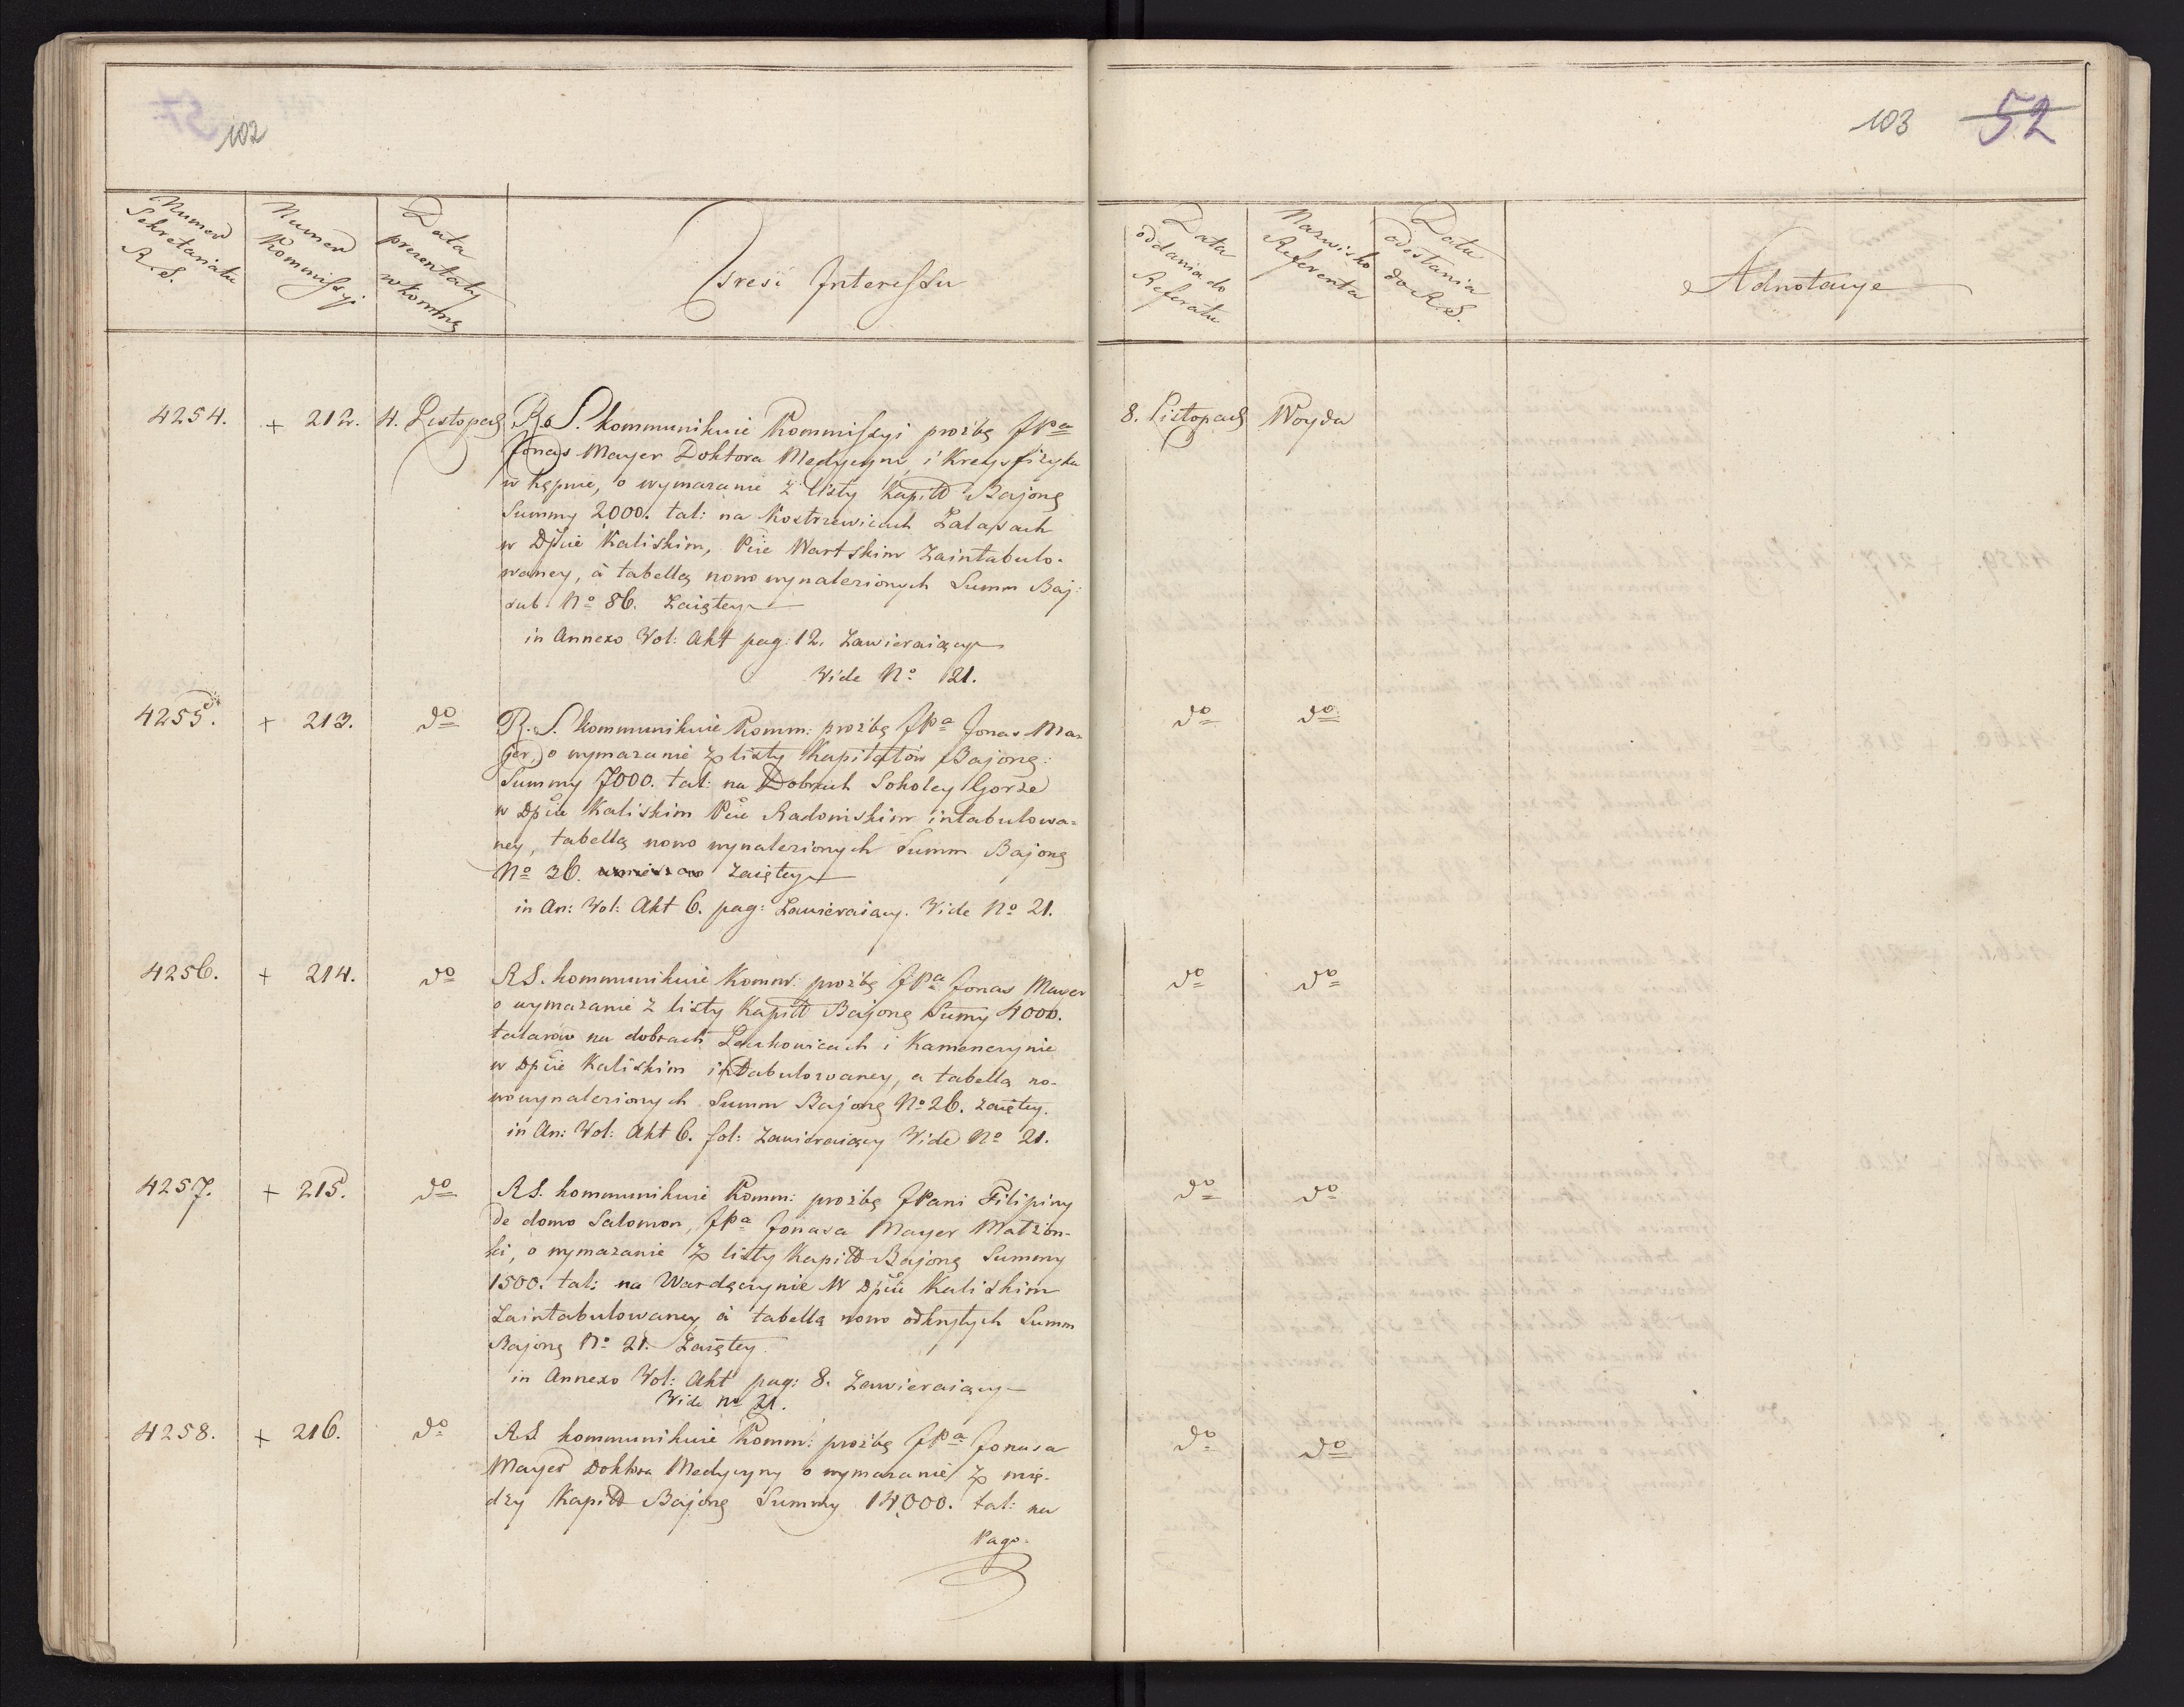 102
Numer Sekretariatu R. S.
Numer Kommissyi
Data prezentaty w Kommę
Treść Interessu
4254. + 212. 4. Listopad R. S. kommunikuie Kommissyi proźbę JPa
Jonas Mayer Doktora Medycyny, i Kreysfizyka
w Kępnie, o wymazanie z listy Kapitł Bajonę
Summy 2000. tal: na Kostrzewicach Zalasach
w Dpcie Kaliskim, Pcie Wartskim Zaintabulo-
waney, à tabellą nowo wynalezionych Summ Baj:
sub No 86. Zaiętey
in Annexo Vol: Akt pag: 12. Zawieraiący
Vide No 121.
4255. + 213. do R. S. kommunikuie Komm: proźbę JPa Jonas Ma-
jer, o wymazanie z listy Kapitałów Bajonę:
Summy 7000. tal: na Dobrach Sokoley Gorze
w Dpcie Kaliskim Pcie Radomskim intabulowa-
ney, tabellą nowo wynalezionych Summ Bajonę
No 36. Zaiętey
in An: Vol: Akt 6. pag: Zawieraiący. Vide No 21.
4256. + 214. do RS. kommunikuie Komm: proźbę JPa Jonas Mayer
o wymazanie z listy Kapitł Bajonę Summy 4000.
talarów na dobrach Leskowicach i Kamenczynie
w Dpcie Kaliskim intabulowaney, a tabellą no-
wowynalezionych Summ Bajonę No 26. zaiętey.
in An: Vol: Akt 6. fol: Zawieraiący Vide No 21.
4257. + 215. do RS. kommunikuie Komm: proźbę JPani Filipiny
de domo Salomon, JPa Jonasa Mayer Małżon-
ki, o wymazanie z listy Kapitł Bajonę Summy
1500. tal: na Wardęczynie W Dpcie Kaliskim
Zaintabulowaney à tabellą nowo odkrytych Summ
Bajonę No 21. Zaiętey.
in Annexo Vol: Akt pag: 8. Zawieraiący
Vide No 21.
4258. + 216. do RS kommunikuie Komm: proźbę JPa Jonasa
Mayer Doktora Medycyny o wymazanie z mię-
dzy Kapitł Bajonę Summy 14000. tal: na
Pago-
103 52
Data oddania do Referatu
Nazwisko Referenta
Data odesłania do R. S.
Adnotacye
8. Listopad Woyda
do do
do do
do do
do do